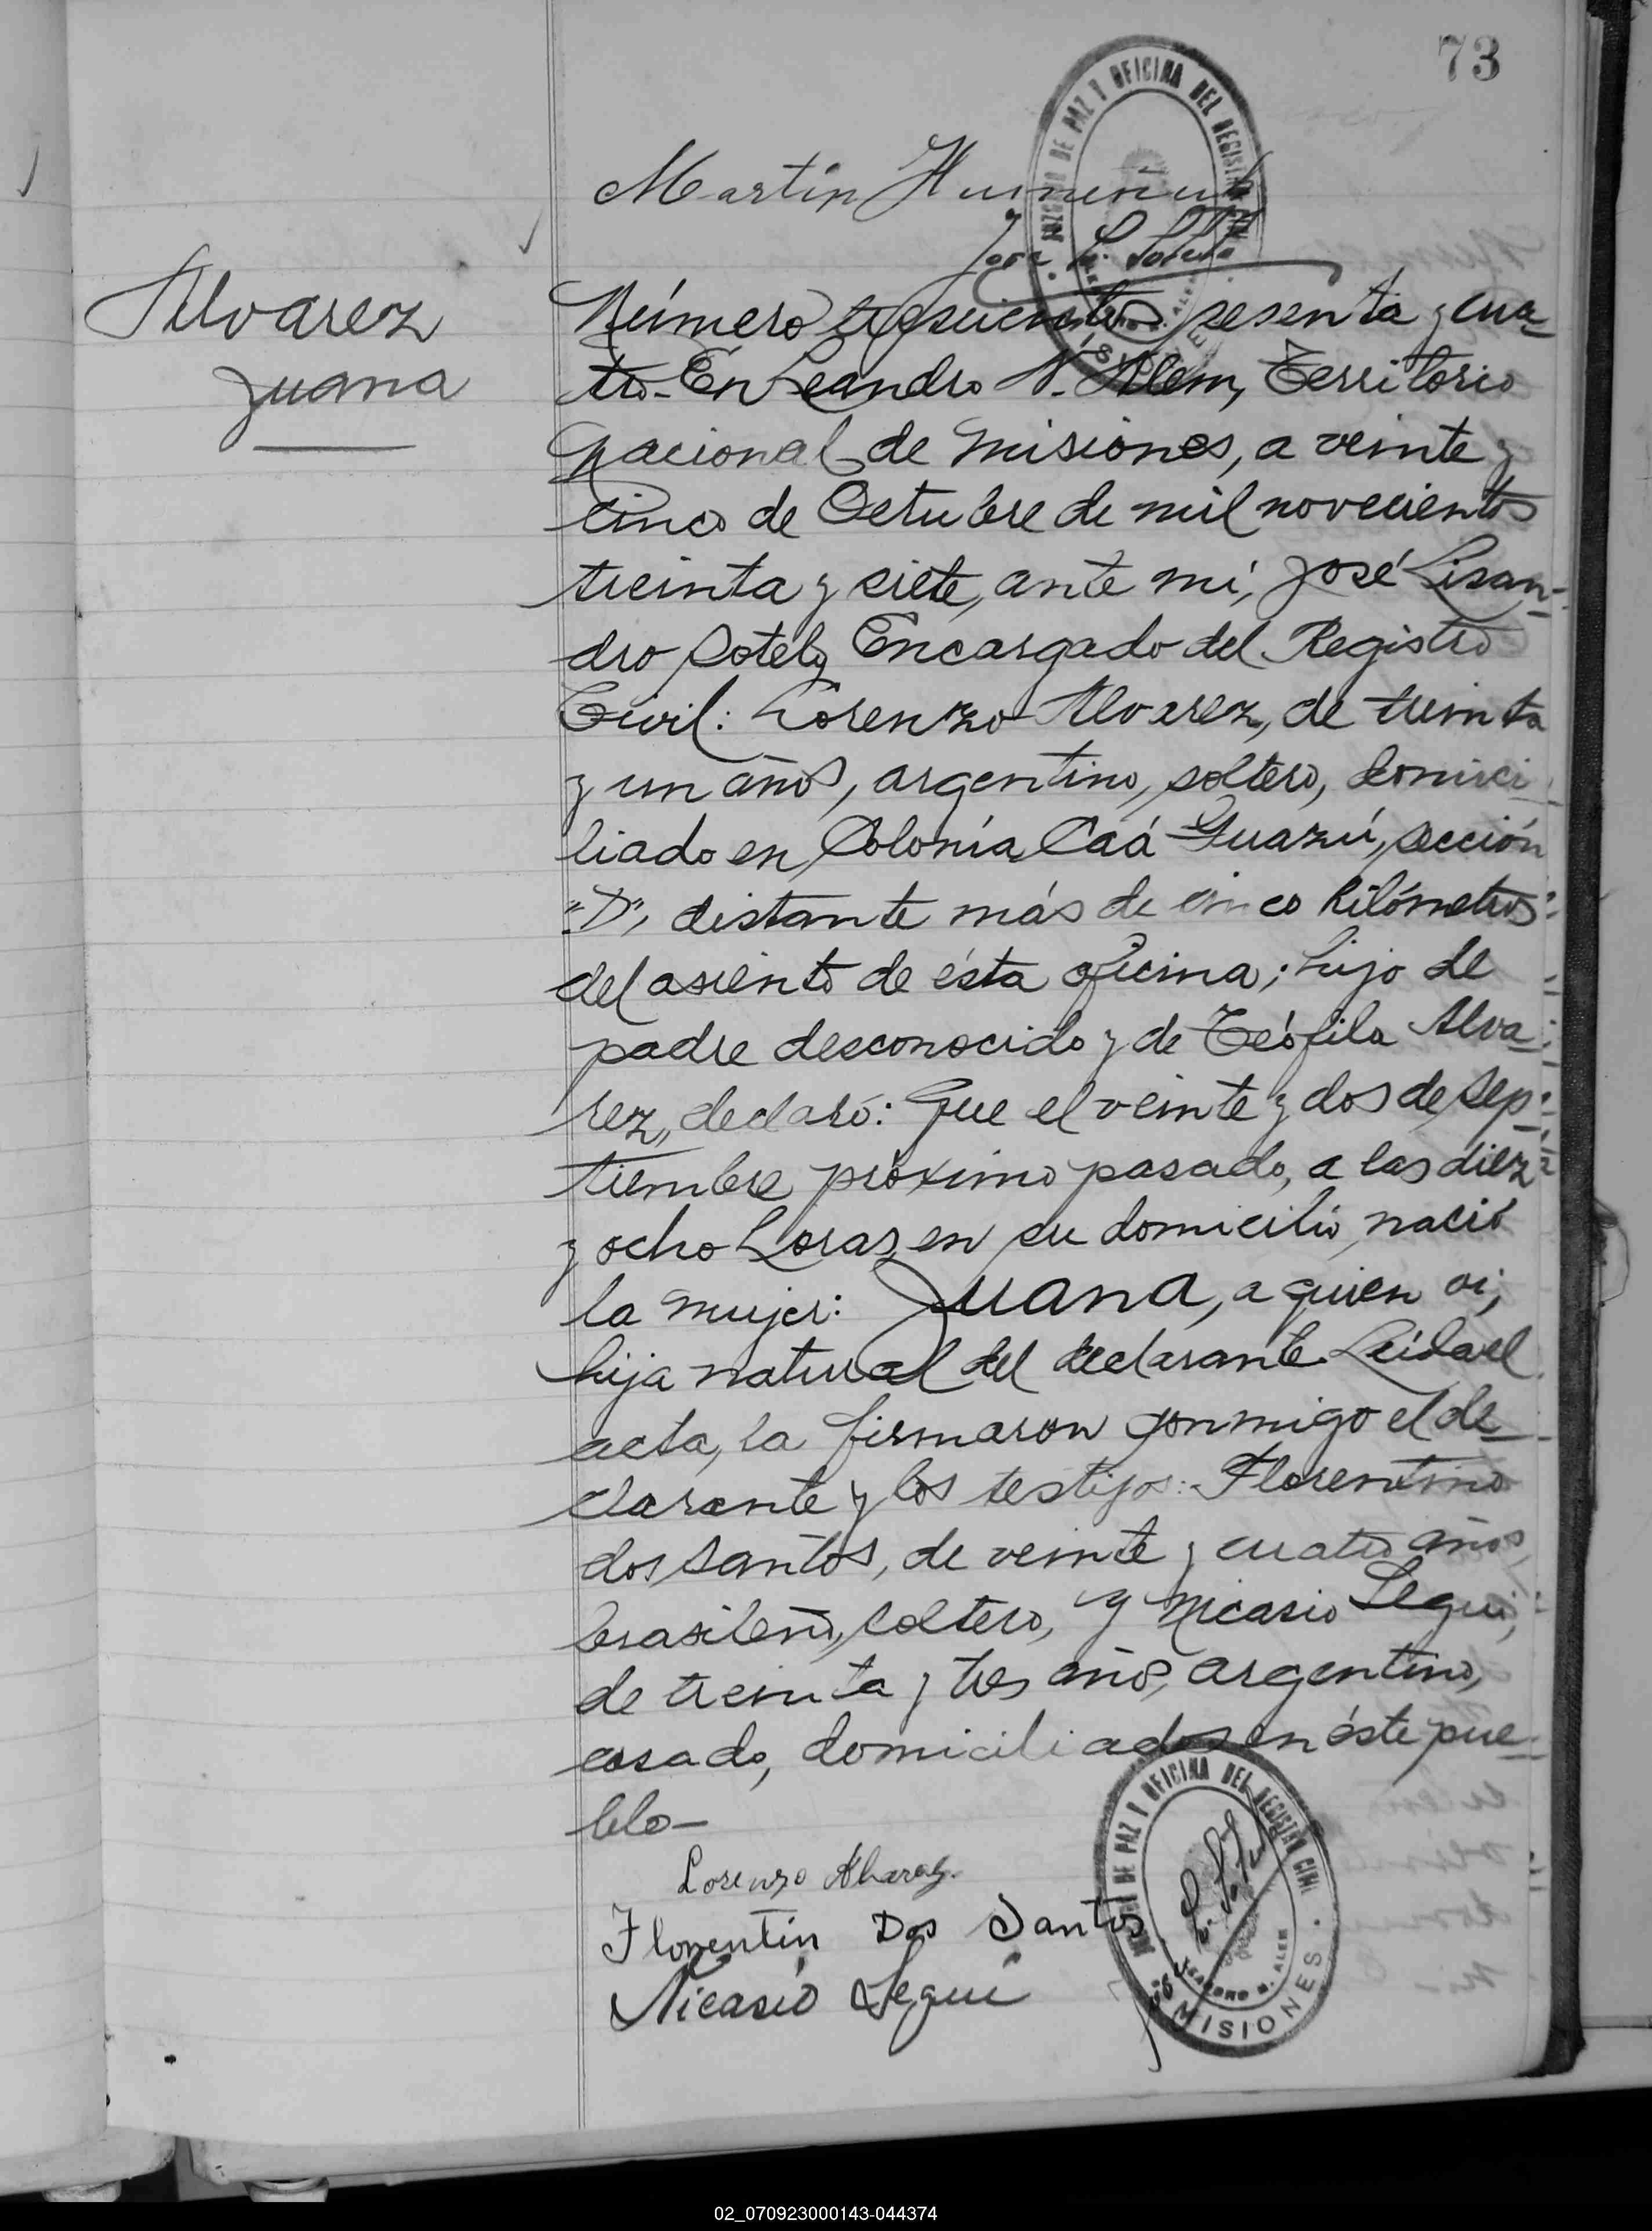 73
JUZGADO DE PAZ Y OFICINA DEL REGISTRO CIVIL
Martin
José L. Sotelo
Alvarez
Juana
Número trescientos sesenta y cua-
tro.- En Leandro N. Alem, Territorio
Nacional de Misiones, a veinte y
cinco de Octubre de mil novecientos
treinta y siete, ante mí, José Lisan-
dro Sotelo, Encargado del Registro
Civil: Lorenzo Alvarez, de treinta
y un años, argentino, soltero, domici-
liado en Colonia Caá-Guazú, sección
"D", distante más de cinco kilómetros
del asiento de ésta oficina; hijo de
padre desconocido y de Teófila Alva-
rez, declaró: Que el veinte y dos de Sep-
tiembre próximo pasado, a las diez
y ocho horas, en su domicilio, nació
la mujer: Juana, a quien vi;
hija natural del declarante. Leída el
acta, la firmaron conmigo el de-
clarante y los testigos: Florentino
dos Santos, de veinte y cuatro años,
brasileño, soltero, y Nicasio Segui,
de treinta y tres años, argentino,
casado, domiciliados en éste pue-
blo-
Lorenzo Alvarez.
Florentin Dos Santos
Nicasio Segui
José L. Sotelo
JUZGADO DE PAZ Y OFICINA DEL REGISTRO CIVIL
LEANDRO N. ALEM
MISIONES
02_070923000143-044374